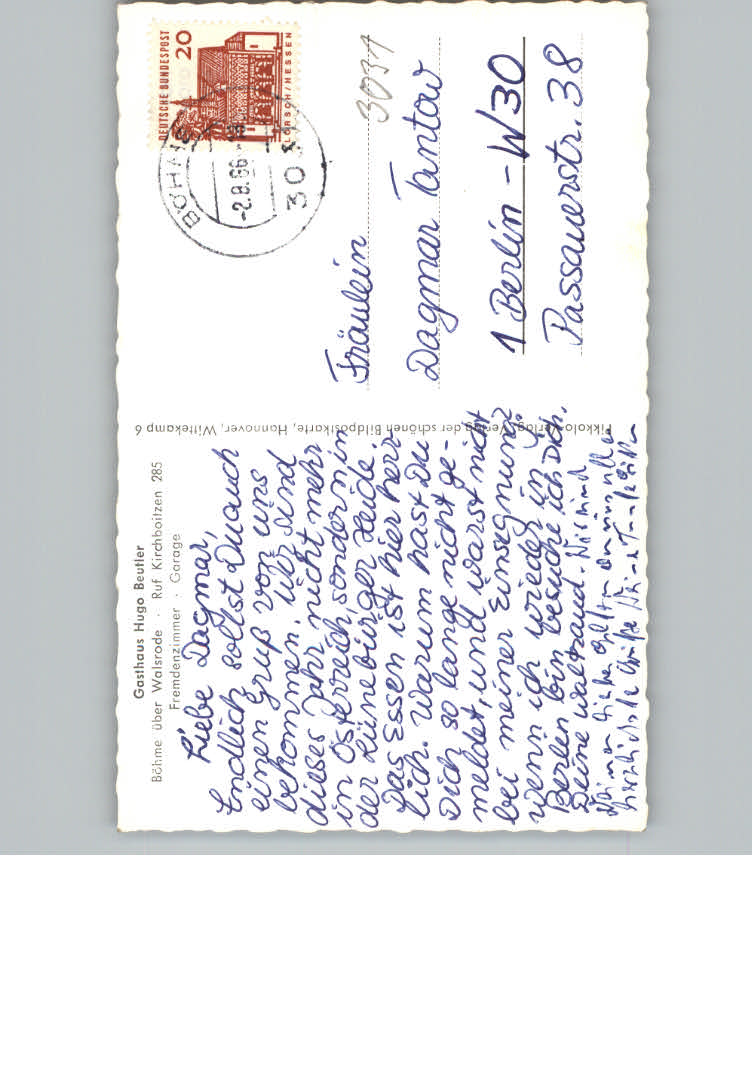 Gasthaus Hugo Beutler
Böhme über Walsrode · Ruf Kirchboitzen 285
Fremdenzimmer · Garage
Liebe Dagmar,
Endlich sollst Du auch
einen Gruß von uns
bekommen. Wir sind
dieses Jahr nicht mehr
in Österreich, sondern in
der Lüneburger Heide.
Das Essen ist hier herr
lich. Warum hast Du
Dich so lange nicht ge-
meldet, und warst nicht
bei meiner Einsegnung?
Wenn ich wieder in
Berlin bin besuche ich Dich.
Deine Waltraud.
herzlichste Grüße
Pikkolo-Verlag, Verlag der schönen Bildpostkarte, Hannover, Wittekamp 6
DEUTSCHE BUNDESPOST
20
LORSCH/HESSEN
-2.8.66
303
3031
Fräulein
Dagmar Tantow
1 Berlin - W30
Passauerstr. 38